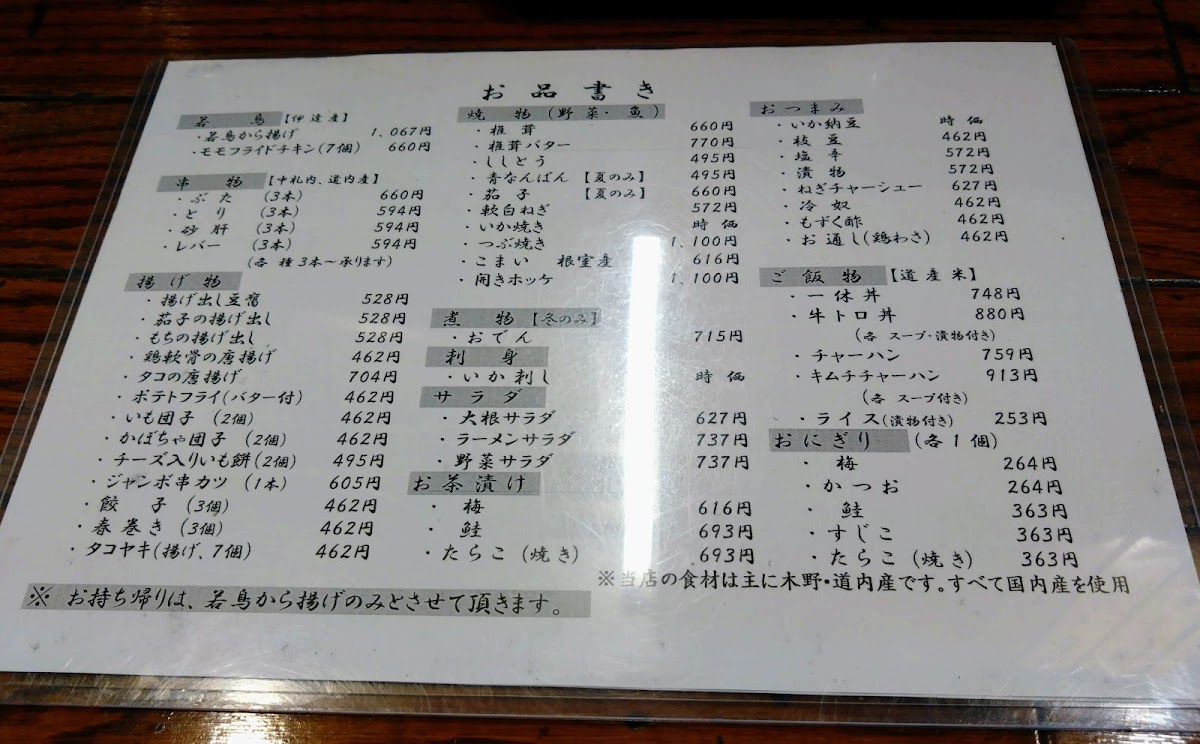 お品書き
若鳥【伊達産】
・若鳥から揚げ 1,067円
・モモフライドチキン(7個) 660円
串物【中札内、道内産】
・ぶた (3本) 660円
・とり (3本) 594円
・砂肝 (3本) 594円
・レバー (3本) 594円
(各種3本～承ります)
揚げ物
・揚げ出し豆腐 528円
・茄子の揚げ出し 528円
・もちの揚げ出し 528円
・鶏軟骨の唐揚げ 462円
・タコの唐揚げ 704円
・ポテトフライ(バター付) 462円
・いも団子 (2個) 462円
・かぼちゃ団子 (2個) 462円
・チーズ入りいも餅(2個) 495円
・ジャンボ串カツ (1本) 605円
・餃子 (3個) 462円
・春巻き (3個) 462円
・タコヤキ(揚げ、7個) 462円
※ お持ち帰りは、若鳥から揚げのみとさせて頂きます。
焼物(野菜・魚)
・椎茸 660円
・椎茸バター 770円
・ししとう 495円
・青なんばん【夏のみ】 495円
・茄子【夏のみ】 660円
・軟白ねぎ 572円
・いか焼き 時価
・つぶ焼き 1,100円
・こまい 根室産 616円
・開きホッケ 1,100円
煮物【冬のみ】
・おでん 715円
刺身
・いか刺し 時価
サラダ
・大根サラダ 627円
・ラーメンサラダ 737円
・野菜サラダ 737円
お茶漬け
・梅 616円
・鮭 693円
・たらこ(焼き) 693円
おつまみ
・いか納豆 時価
・枝豆 462円
・塩辛 572円
・漬物 572円
・ねぎチャーシュー 627円
・冷奴 462円
・もずく酢 462円
・お通し(鶏わさ) 462円
ご飯物【道産米】
・一休丼 748円
・牛トロ丼 880円
(各 スープ・漬物付き)
・チャーハン 759円
・キムチチャーハン 913円
(各 スープ付き)
・ライス(漬物付き) 253円
おにぎり(各1個)
・梅 264円
・かつお 264円
・鮭 363円
・すじこ 363円
・たらこ(焼き) 363円
※当店の食材は主に木野・道内産です。すべて国内産を使用